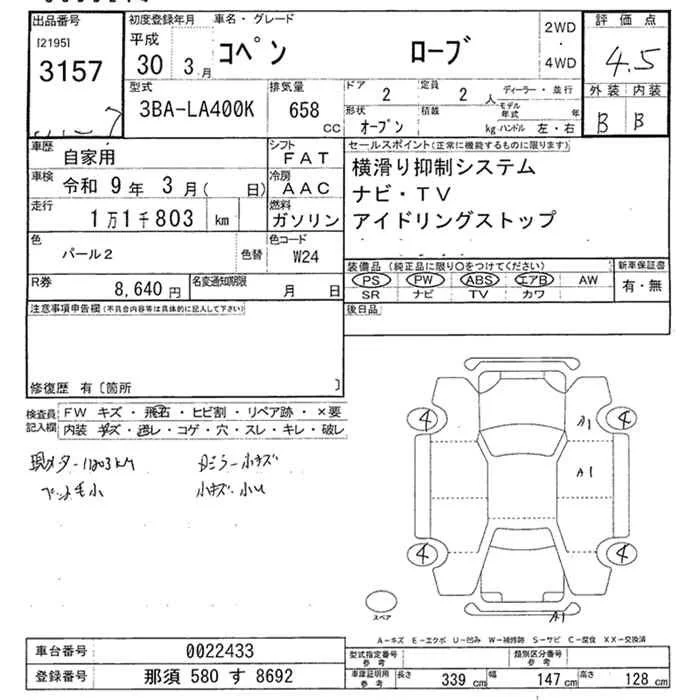 出品番号
[2195]
3157
初度登録年月
平成
30 3月
車名・グレード
コペン ローブ
2WD
・
4WD
評価点
4.5
外装 内装
B B
型式
3BA-LA400K
排気量
658
CC
ドア
2
定員
2
人
ディーラー・並行
モデル年式
年
形状
オープン
積載
kg
ハンドル 左・右
車歴
自家用
シフト
FAT
車検
令和 9年 3月( 日)
冷房
AAC
走行
1万1千803 km
燃料
ガソリン
色
パール2
色替
色コード
W24
R券
8,640円
名変通知期限
月 日
セールスポイント(正常に機能するものに限ります)
横滑り抑制システム
ナビ・TV
アイドリングストップ
装備品(純正品に限り○をつけてください)
PS PW ABS エアB AW
SR ナビ TV カワ
新車保証書
有・無
後日品
注意事項申告欄(不具合内容等は具体的に記入して下さい)
修復歴 有〔箇所 〕
検査員
記入欄
FW キズ・飛石・ヒビ割・リペア跡・×要
内装 キズ・汚レ・コゲ・穴・スレ・キレ・破レ
4 4
A1
A1
4 4
A1
スペア
A-キズ E-エクボ U-凹み W-補修跡 S-サビ C-腐食 XX-交換済
車台番号
0022433
登録番号
那須 580 す 8692
型式指定番号
参考
類別区分番号
参考
車庫証明用
参考
長さ 339 cm 幅 147 cm 高さ 128 cm